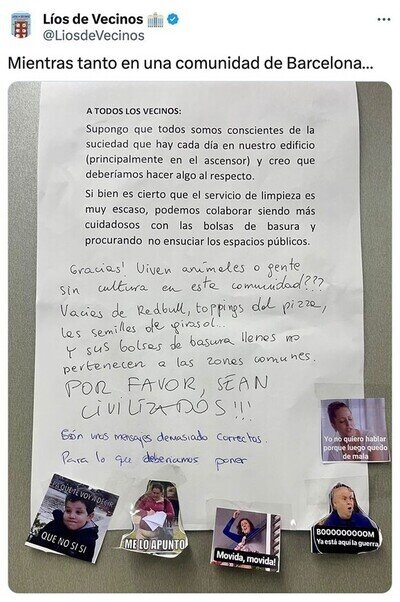 Líos de Vecinos
@LiosdeVecinos
Mientras tanto en una comunidad de Barcelona...
A TODOS LOS VECINOS:
Supongo que todos somos conscientes de la
suciedad que hay cada día en nuestro edificio
(principalmente en el ascensor) y creo que
deberíamos hacer algo al respecto.
Si bien es cierto que el servicio de limpieza es
muy escaso, podemos colaborar siendo más
cuidadosos con las bolsas de basura y
procurando no ensuciar los espacios públicos.
Gracias! Viven animales o gente
sin cultura en este comunidad???
Vacies de Redbull, toppings del pizza,
les semilles de girasol...
Y sus bolses de basura llenes no
pertenecen a las zones comunes.
POR FAVOR, SEAN
CIVILIZADOS!!!
Són unos mensajes demasiado correctos.
Para lo que deberíamos poner
Yo no quiero hablar
porque luego quedo
de mala
Y ES QUE TE VOY A DECIR
QUE NO SI SI
ME LO APUNTO
Movida, movida!
BOOOOOOOOOM
Ya está aquí la guerra